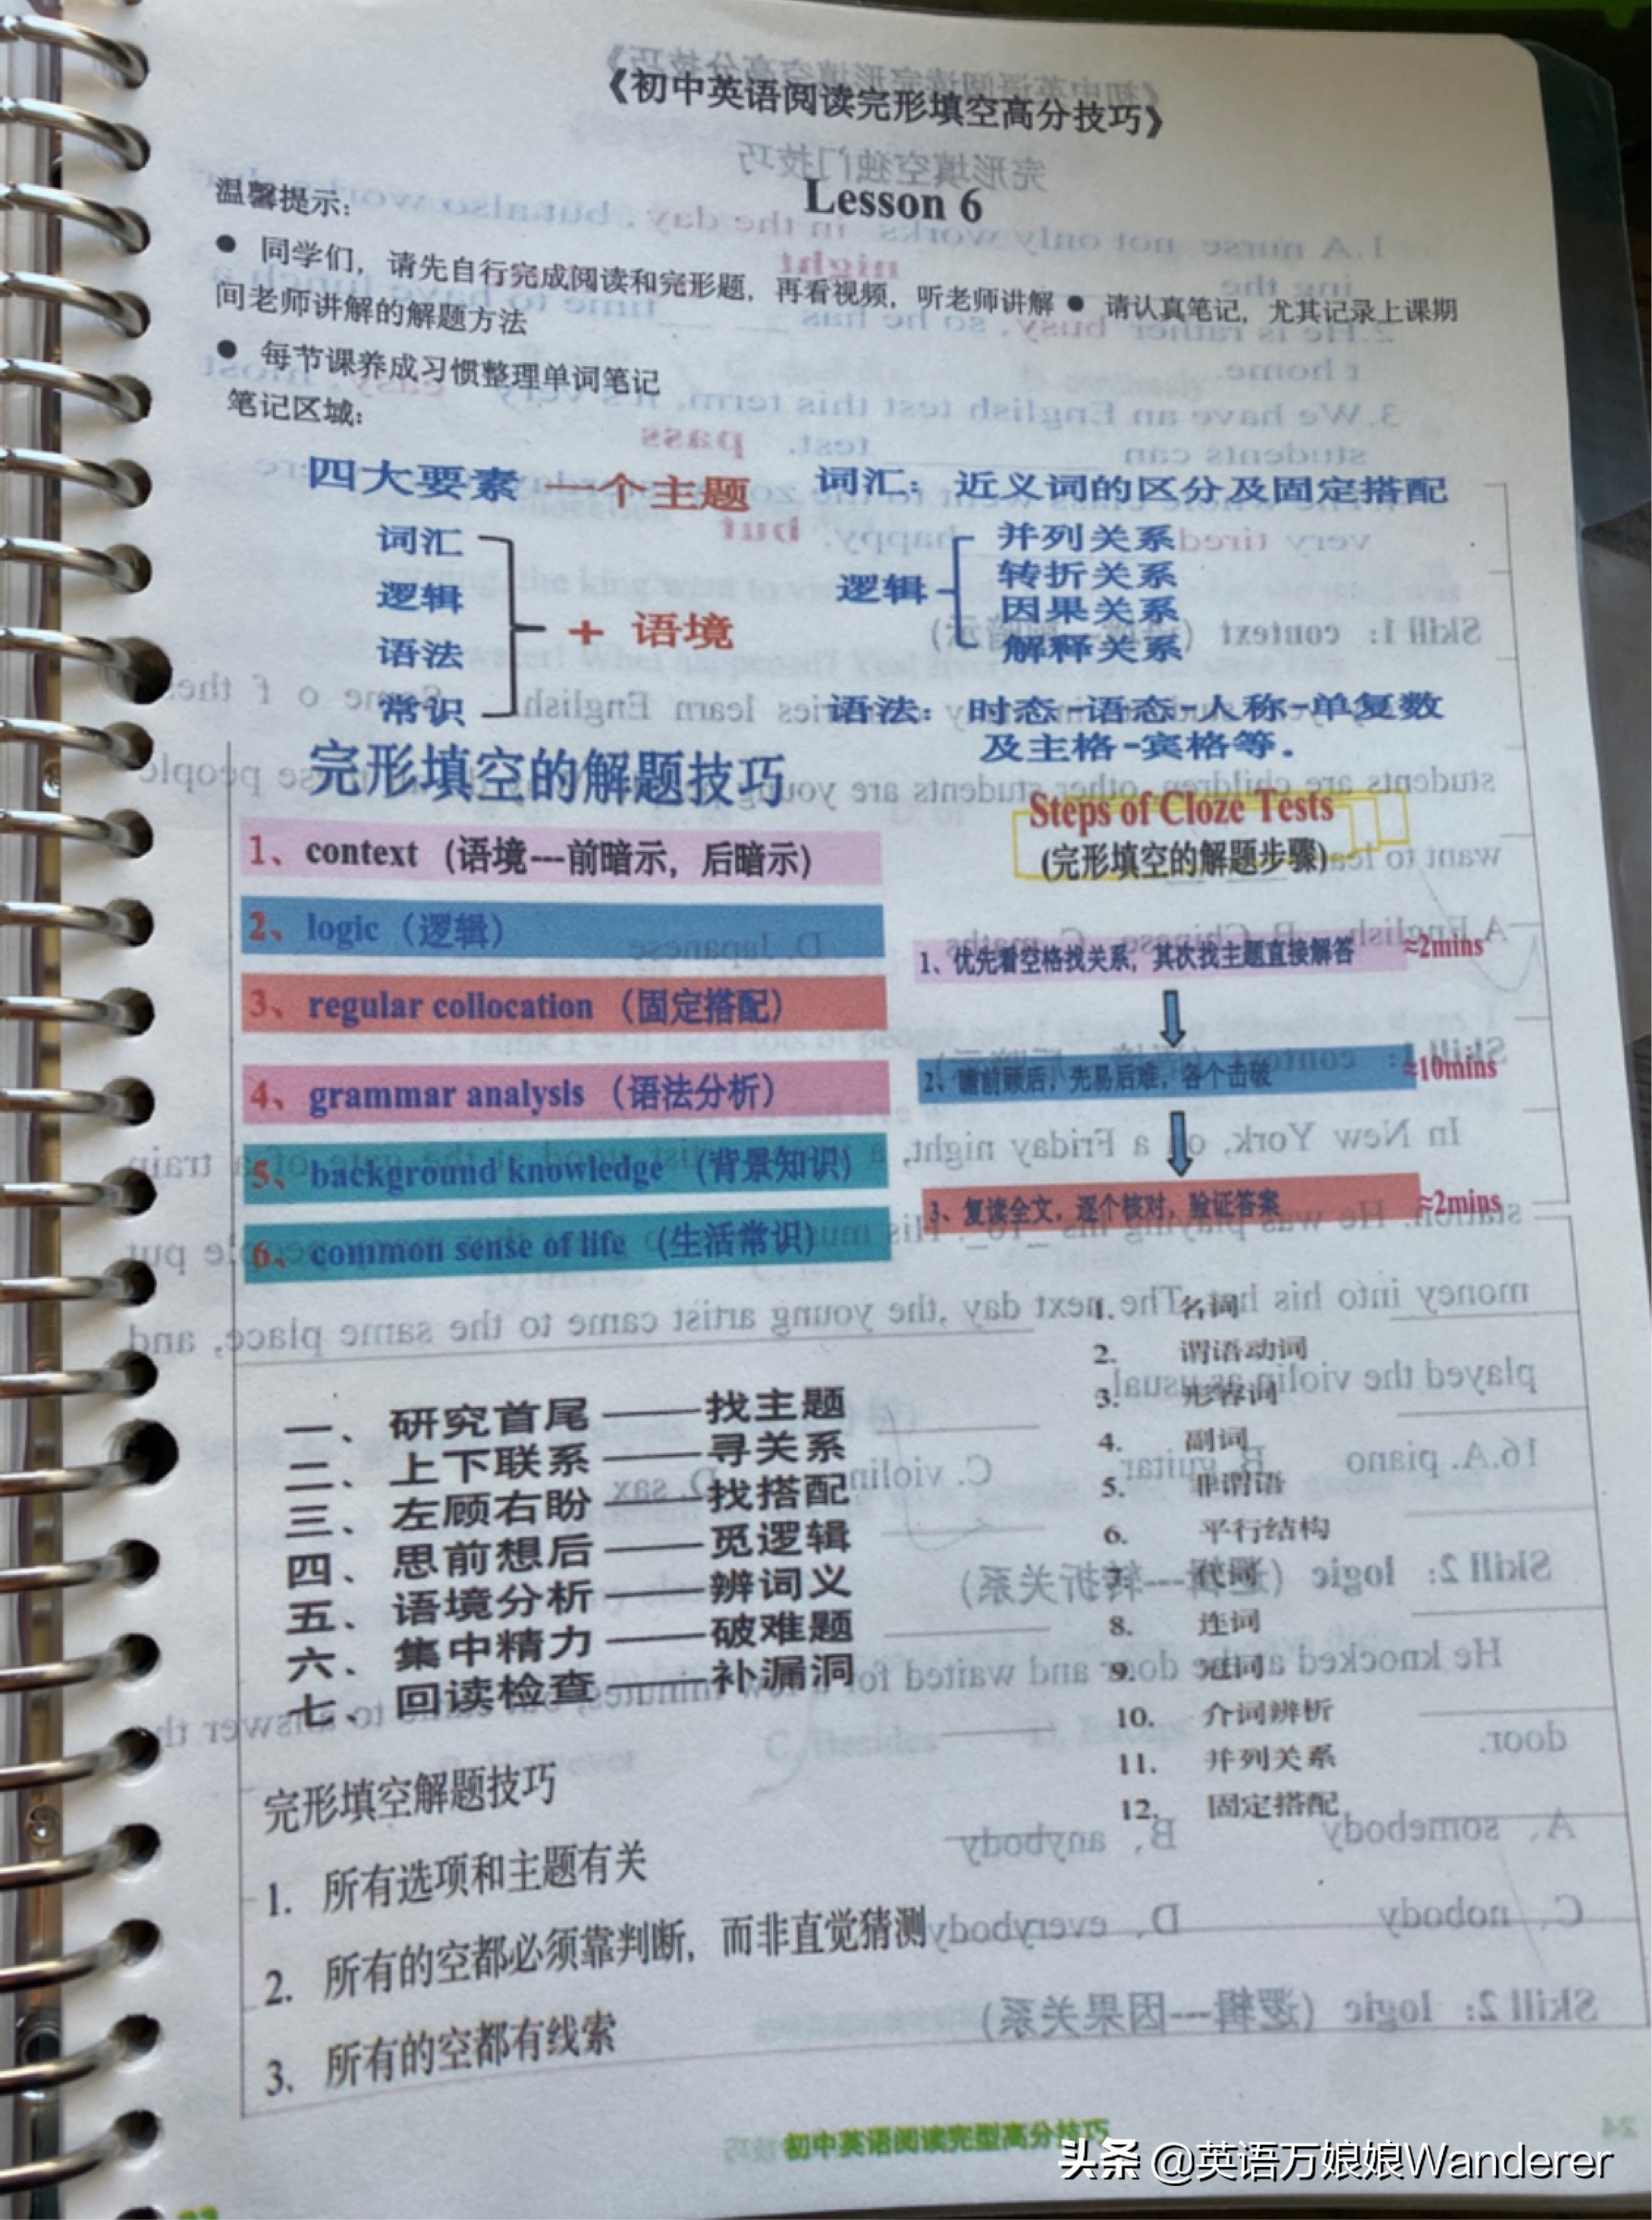 《初中英语阅读完形填空高分技巧》
Lesson 6
温馨提示：
● 同学们，请先自行完成阅读和完形题，再看视频，听老师讲解 ● 请认真笔记，尤其记录上课期
间老师讲解的解题方法
● 每节课养成习惯整理单词笔记
笔记区域：
四大要素 一个主题
词汇
逻辑
语法
常识
+ 语境
词汇：近义词的区分及固定搭配
逻辑
并列关系
转折关系
因果关系
解释关系
语法：时态-语态-人称-单复数
及主格-宾格等.
完形填空的解题技巧
1、context (语境---前暗示，后暗示)
2、logic（逻辑）
3、regular collocation（固定搭配）
4、grammar analysis（语法分析）
5、background knowledge（背景知识）
6、common sense of life（生活常识）
Steps of Cloze Tests
(完形填空的解题步骤)
1、优先看空格找关系，其次找主题直接解答 ≈2mins
2、瞻前顾后，先易后难，各个击破 ≈10mins
3、复读全文，逐个核对，验证答案 ≈2mins
一、研究首尾——找主题
二、上下联系——寻关系
三、左顾右盼——找搭配
四、思前想后——觅逻辑
五、语境分析——辨词义
六、集中精力——破难题
七、回读检查——补漏洞
1. 名词
2. 谓语动词
3. 形容词
4. 副词
5. 非谓语
6. 平行结构
7. 代词
8. 连词
9. 冠词
10. 介词辨析
11. 并列关系
12. 固定搭配
完形填空解题技巧
1. 所有选项和主题有关
2. 所有的空都必须靠判断，而非直觉猜测
3. 所有的空都有线索
初中英语阅读完型高分技巧
头条 @英语万娘娘Wanderer